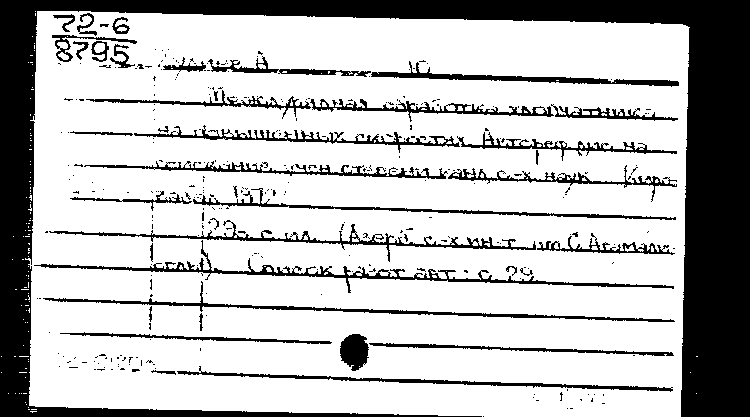 72-6
8795
А Ю
Междурядная обработка хлопчатника
на повышенных скоростях Автореф дис на
соискание учен степени канд с.-х. наук Киро-
вабад 1972
29 с. с ил. (Азерб с.-х ин-т им С. Агамали-
оглы). Список работ авт.: с. 29